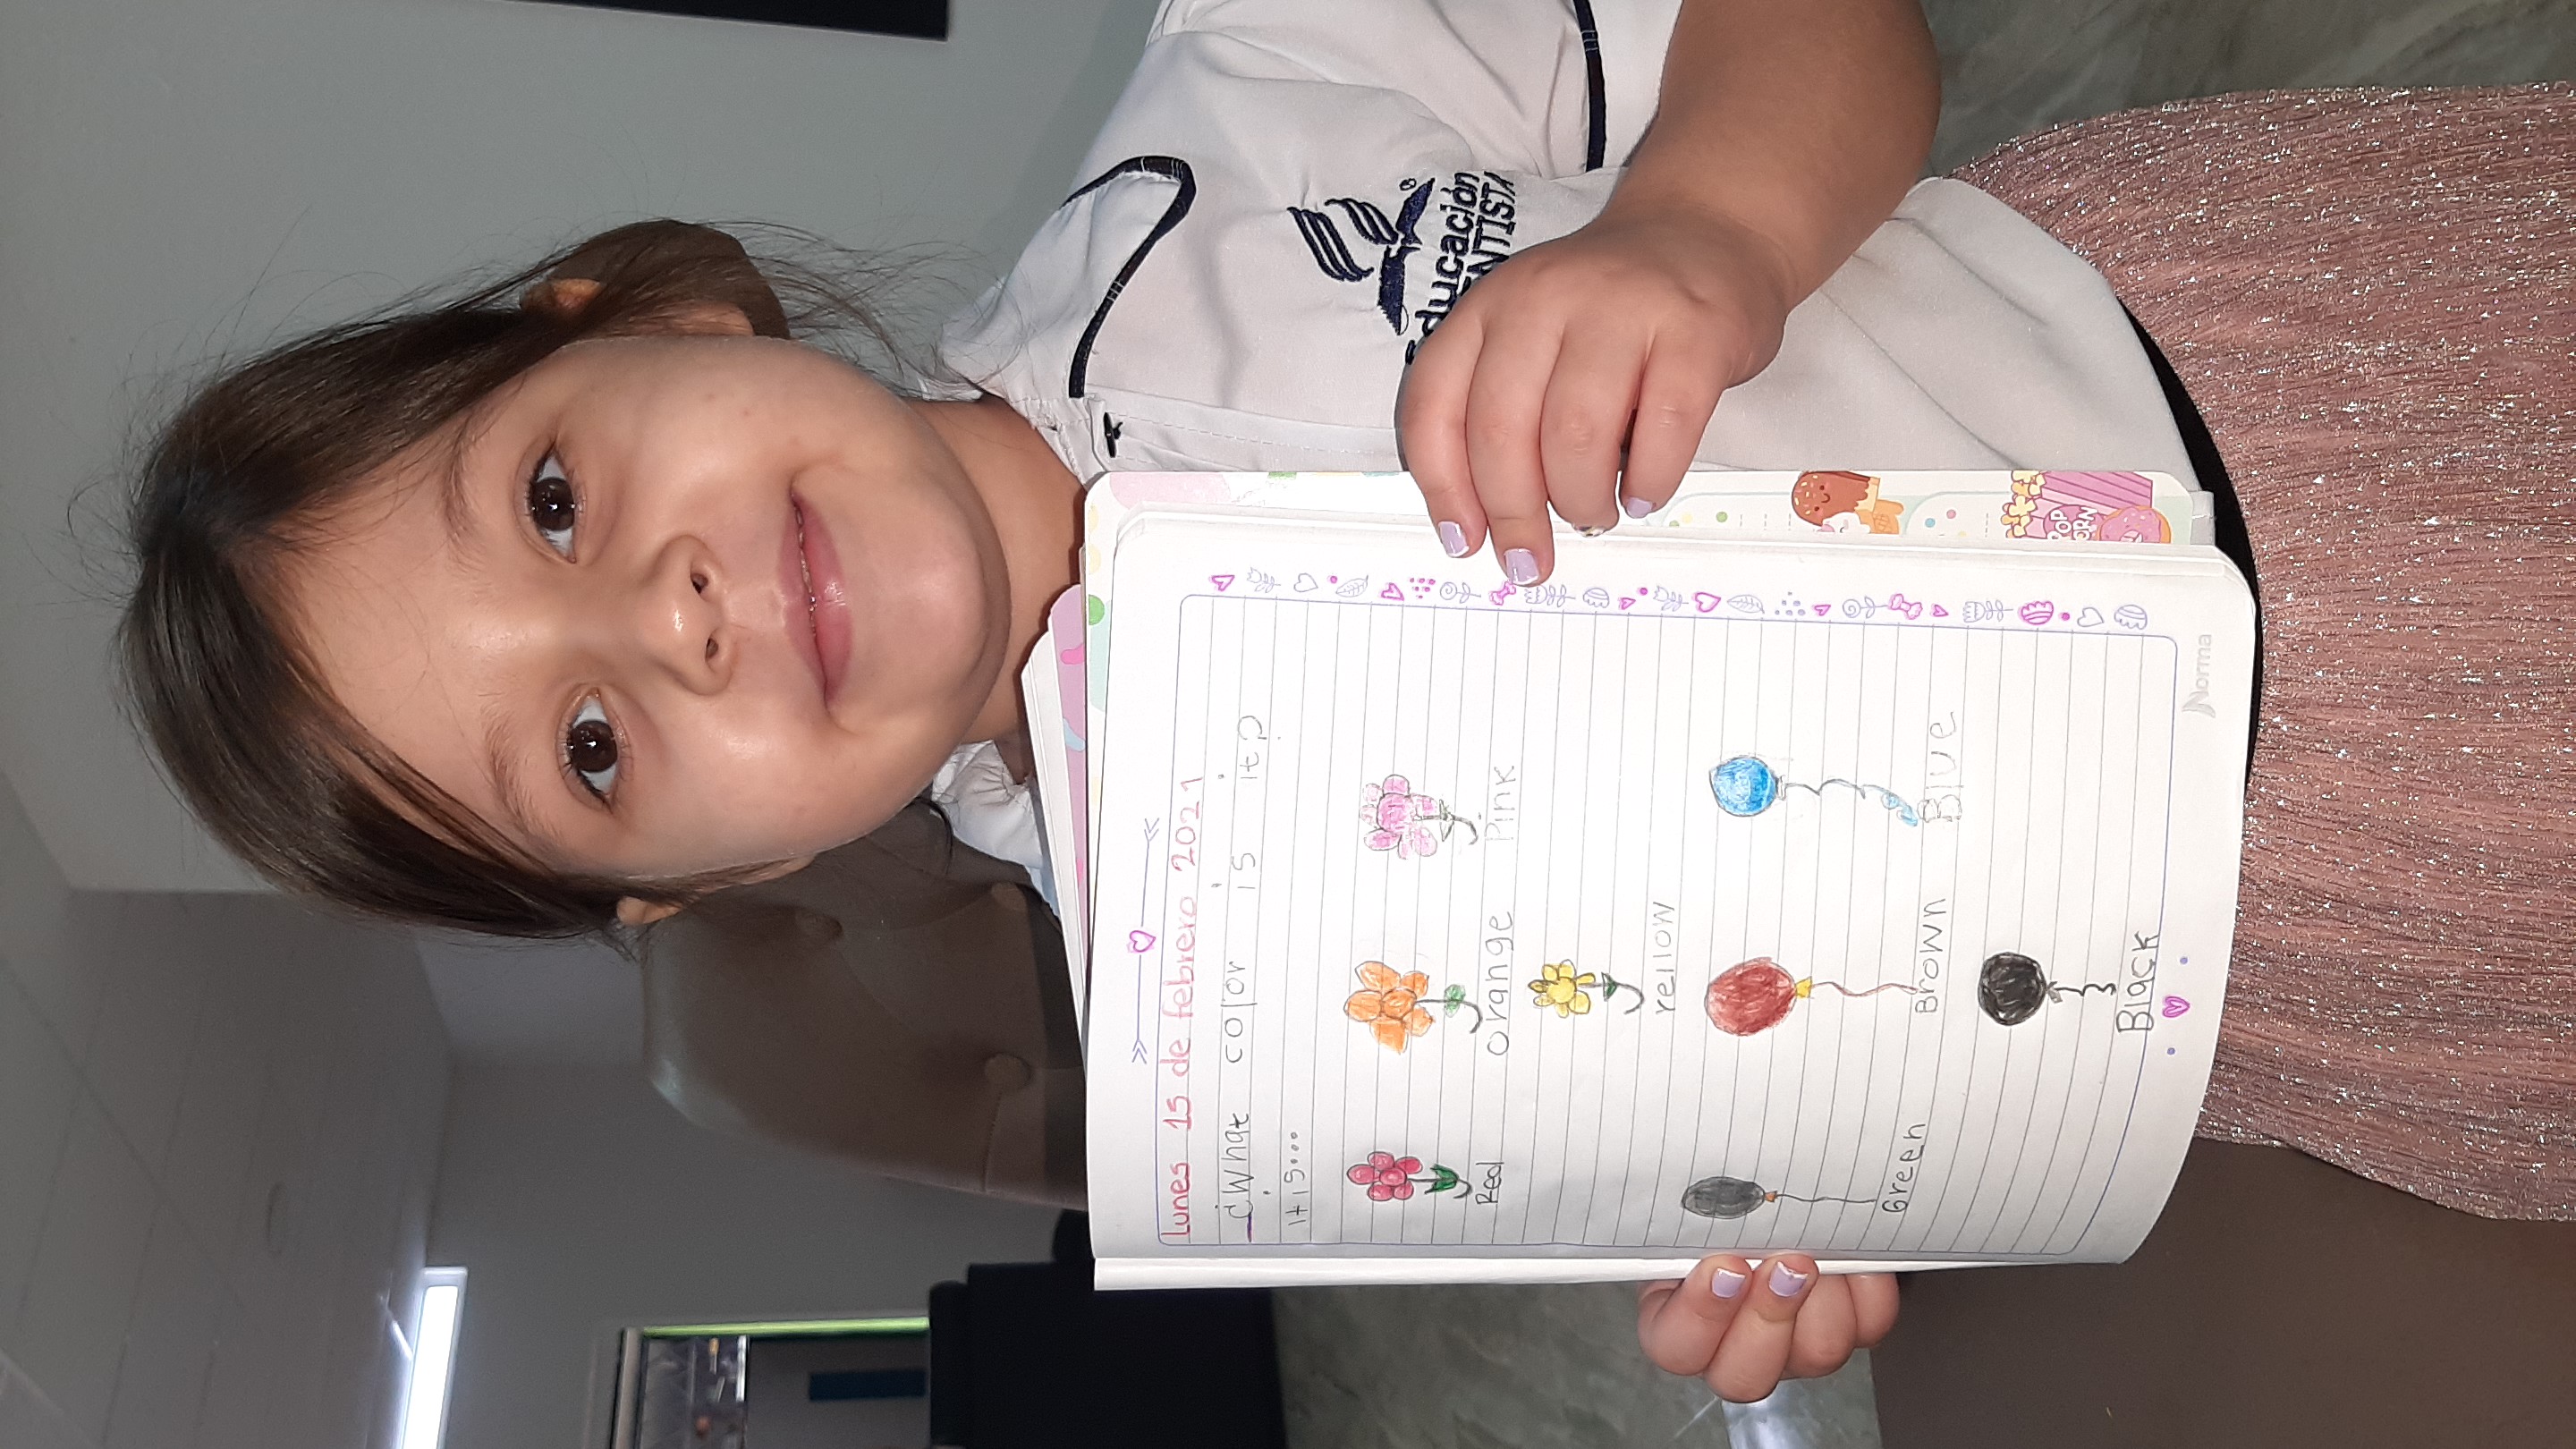 lunes 15 de febrero 2021
¿What color is it?
it is...
Red orange Pink
yellow
Green Brown Blue
Black
Norma
Educación
ENTISTA
POP
CORN